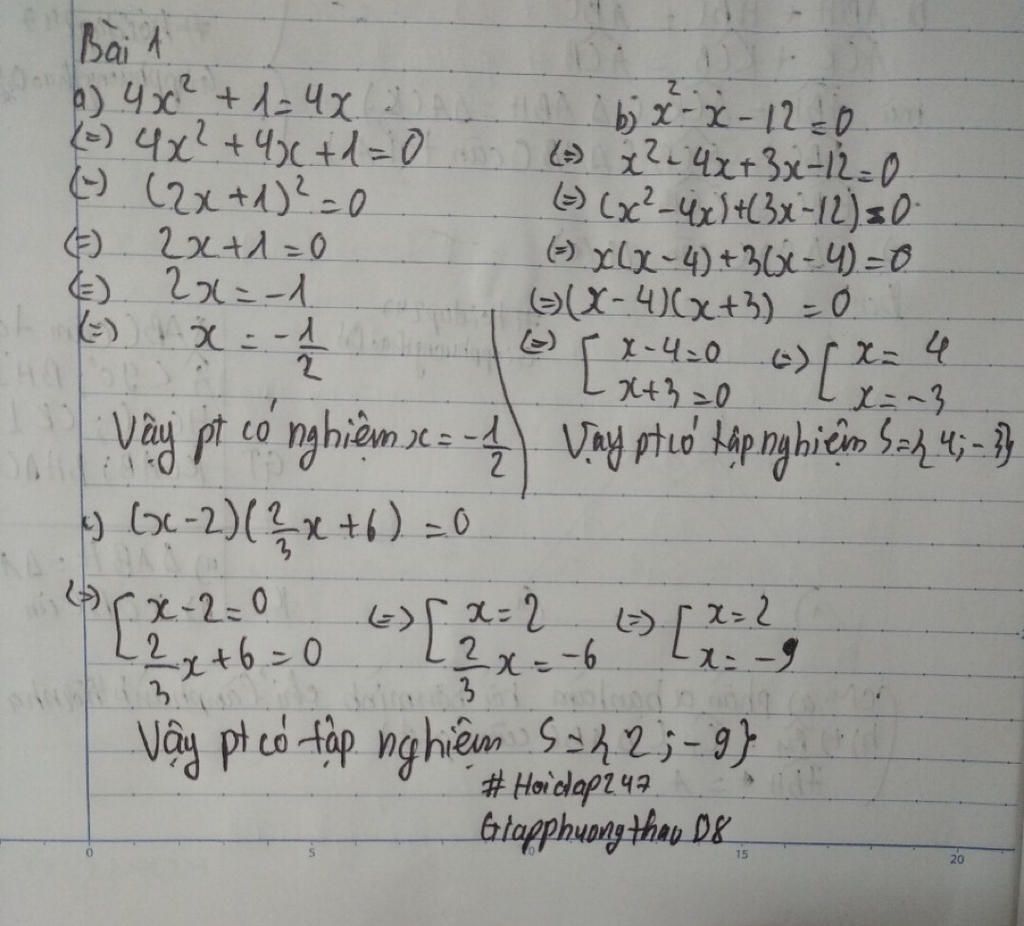 Bài 1
a) 4x² + 1 = 4x
(=) 4x² + 4x + 1 = 0
(=) (2x + 1)² = 0
(=) 2x + 1 = 0
(=) 2x = -1
(=) x = -1/2
Vậy pt có nghiệm x = -1/2
b) x² - x - 12 = 0
(=) x² - 4x + 3x - 12 = 0
(=) (x² - 4x) + (3x - 12) = 0
(=) x(x - 4) + 3(x - 4) = 0
(=) (x - 4)(x + 3) = 0
(=) [ x - 4 = 0 (=) [ x = 4
x + 3 = 0 x = -3
Vậy pt có tập nghiệm S = {4; -3}
c) (x - 2)(2/3x + 6) = 0
(=) [ x - 2 = 0 (=) [ x = 2 (=) [ x = 2
2/3x + 6 = 0 2/3x = -6 x = -9
Vậy pt có tập nghiệm S = {2; -9}
#Hoidap247
Giapphuongthao D8
0 5 10 15 20